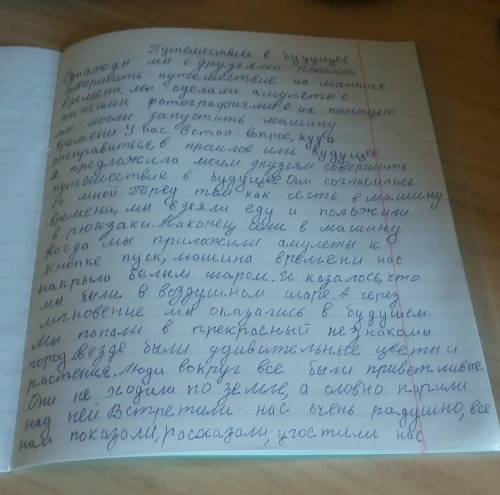 Путешествие в будущее
Однажды мы с друзьями решили
совершить путешествие на машине
времени, мы сделали амулеты с
нашими фотографиями с их помощью
мы могли запустить машину
времени. У нас встал вопрос, куда
отправиться, в прошлое или будущее
я предложила моим друзьям совершить
путешествие в будущее Они согласились
со мной. Перед тем как сесть в машину
времени, мы взяли еду и положили
в рюкзаки. Наконец сели в машину
когда мы приложили амулеты к
кнопке пуск, машина времени нас
накрыла белым шаром. И казалось, что
мы были в воздушном шаре. А через
мгновение мы оказались в будущем.
Мы попали в прекрасный незнакомы
город везде были удивительные цветы и
растения. Люда вокруг все были приветливые
Они не ходила по земле, а словно парили
над ней. Встретили нас очень радушно, все
нам показали, рассказали, угостили нас